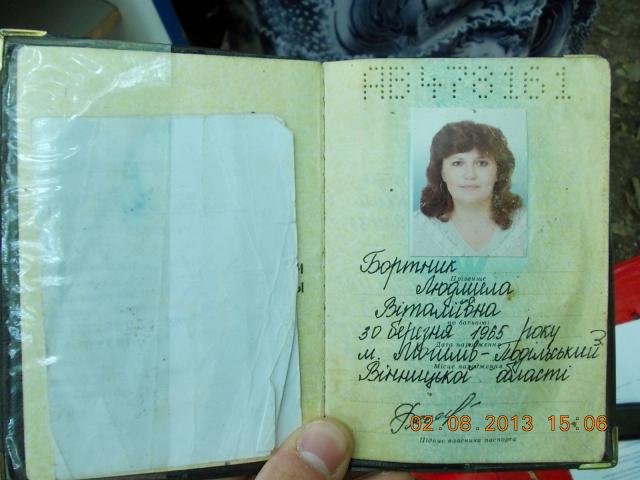 АВ
Бортник
Прізвище
Людмила
Віталіївна
по батькові
30 березня 1965 року
Дата народження
м. Могилів-Подільський
Місце народження
Вінницької області
02.08.2013 15:06
Підпис власника паспорта